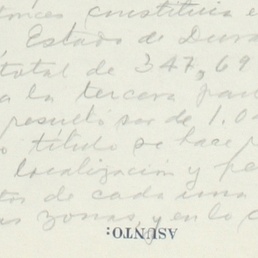 constituia e
Estado de Dura
total de 347,69
a la tercera par
resultó ser de 1.0
título se hace
localización y pe
de cada una
zonas, y en lo
ASUNTO: